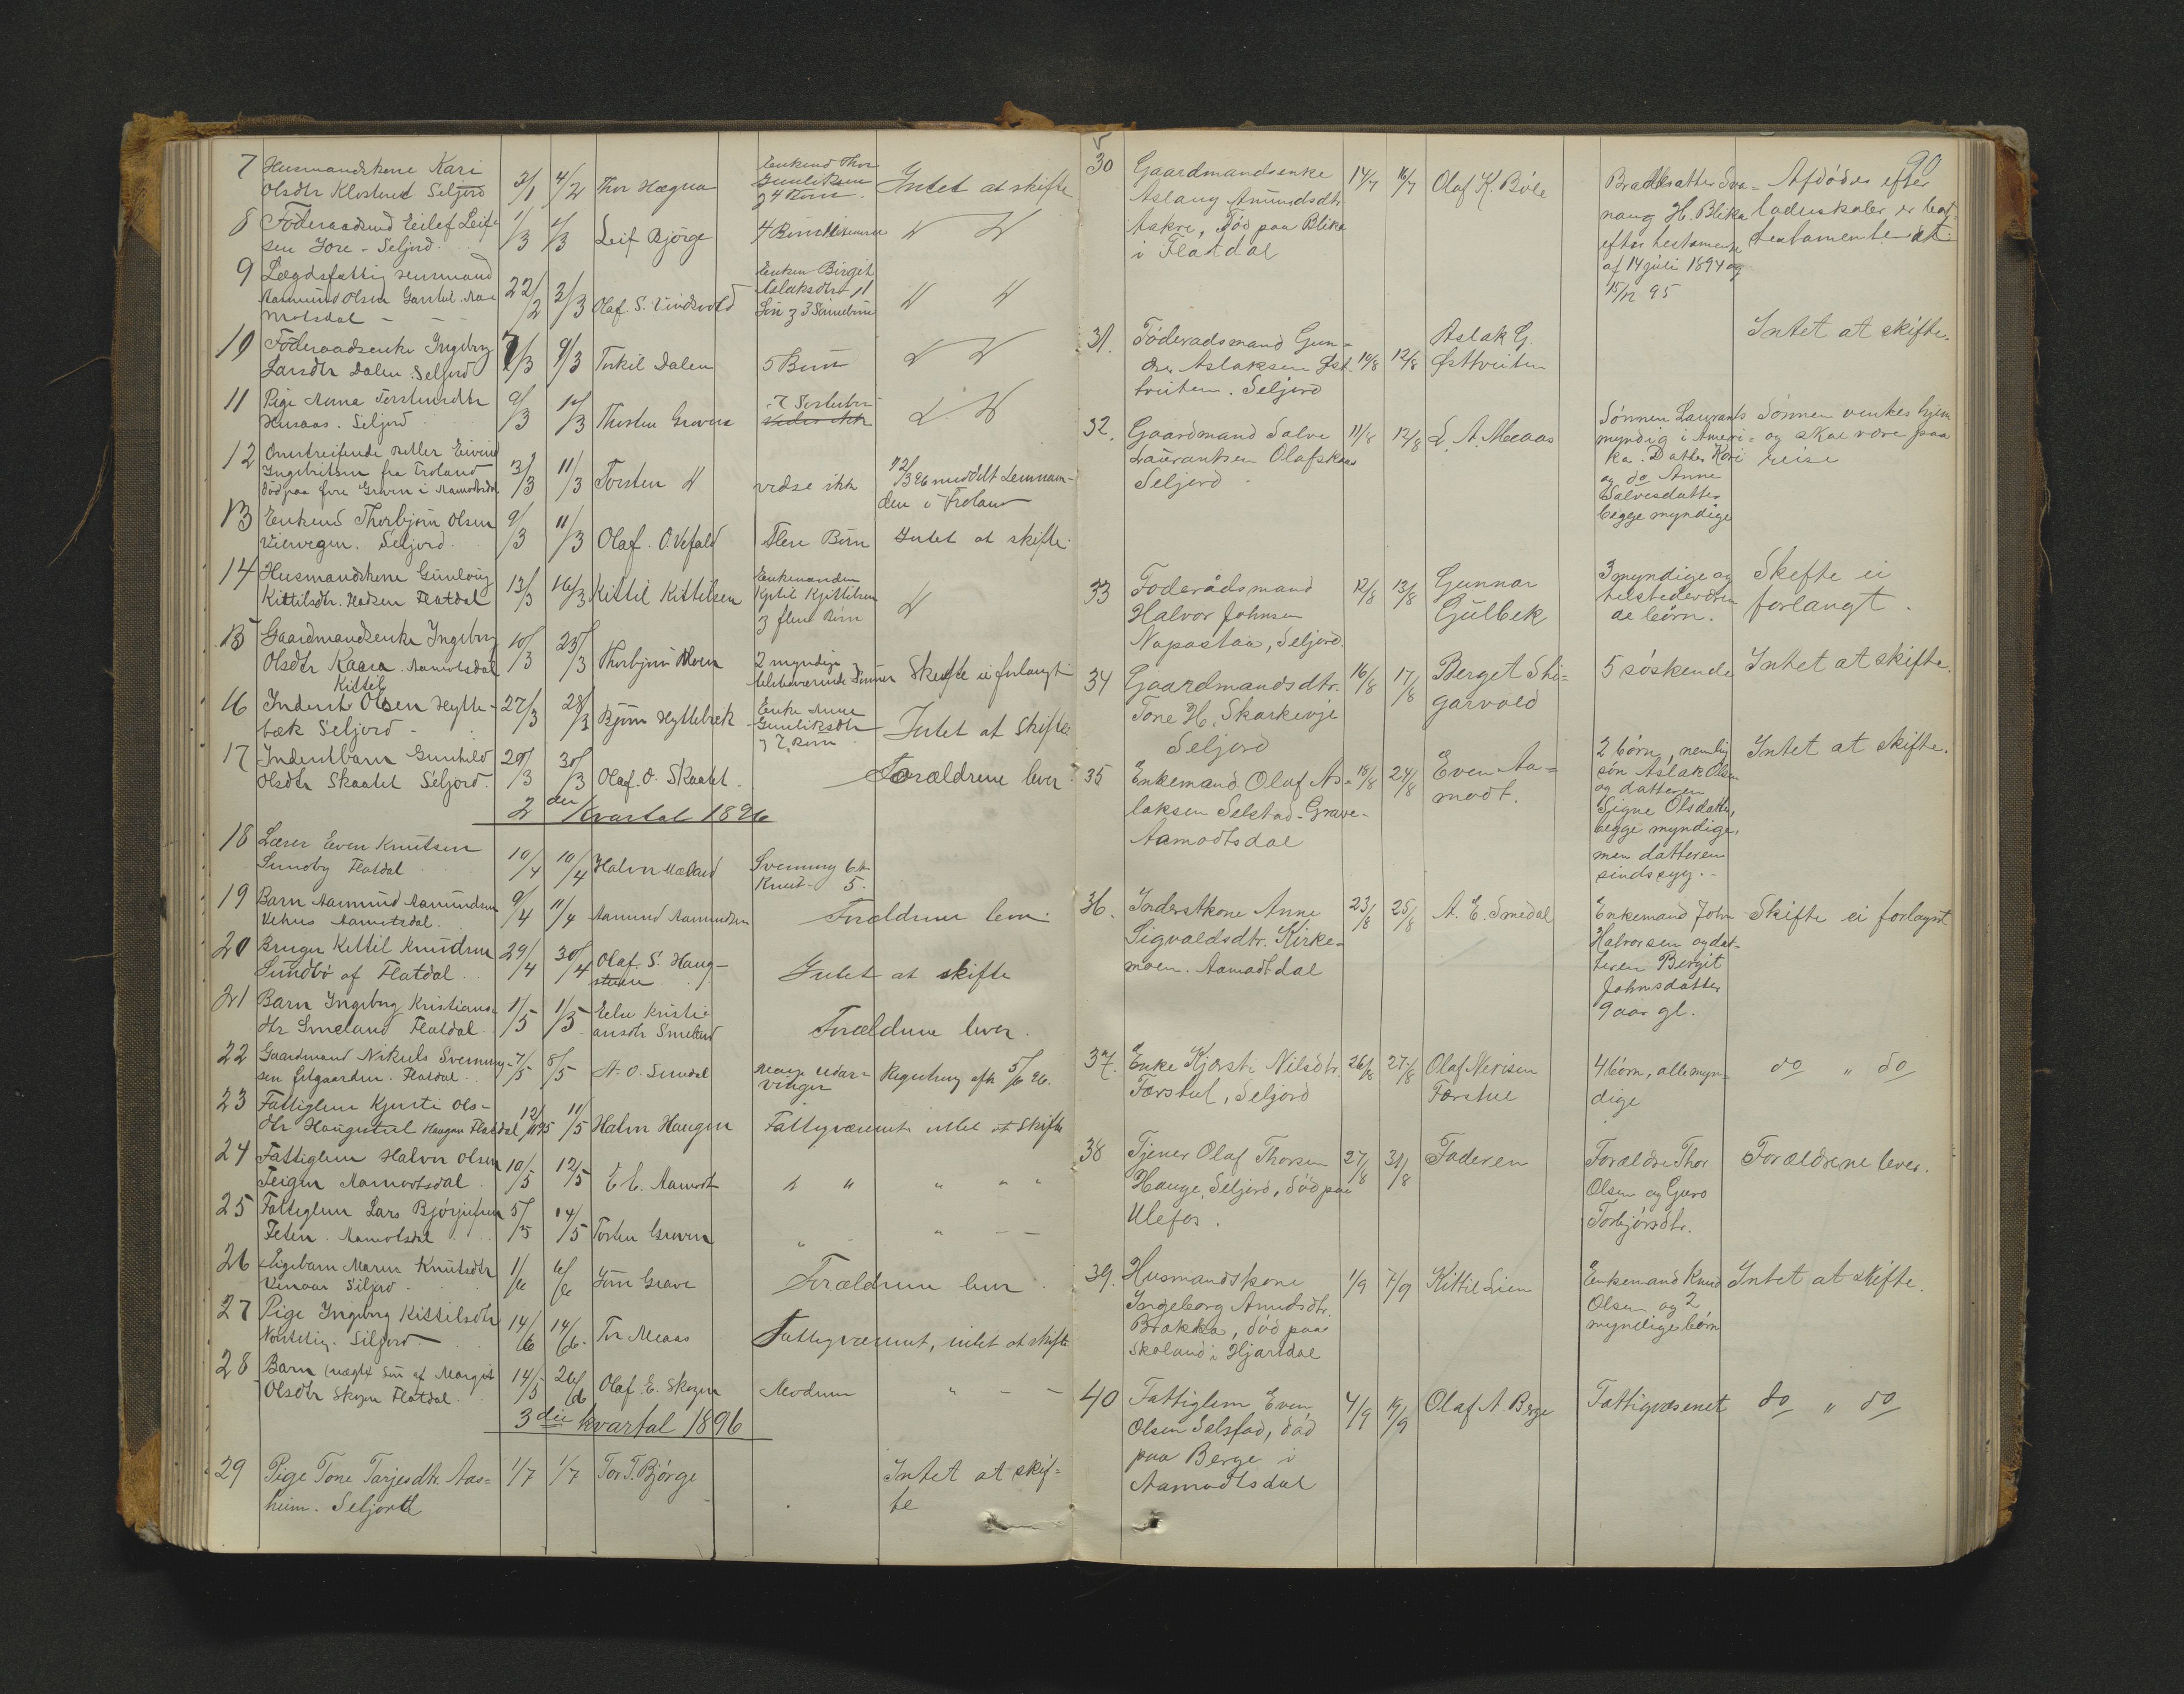 7 Husmandskone Kari
Olsdtr Klostrud Seljord 3/1 4/2 Thor Hægna
Enkemd Thor
Gunliksen
& 4 Børn.
Intet at skifte
8 Föderaadsmd Eilef Leifs
sen Jore - Seljord. 1/3 Leif Bjørge
9 Lægdsfattig Husmand
Aamund Olsen 22/2 3/3 Olaf S.
motsdal
Enken Birgit
Aslaksdtr
10 Föderaadsenke Ingeborg
Larsdtr Dalen Seljord 7/3 9/3 Torkil Dalen 5 Børn
11 Pige Anna Torsteinsdtr
Husaas. Seljord 9/3 10/3 Thorsten Graven
12 Omstreifende Eivind
Ingebritsen fra Froland
død paa Øvre Graven i Aamotsdal 3/3 11/3 Torsten vedse ikke
meddelt Lensman-
den i Froland
13 Enkemd Thorbjørn Olsen
Seljord. 9/3 11/3 Olaf O. Vefald Flere Børn Intet at skifte
14 Husmandskone Gunlaug
Kittilsdtr. Flatdal 13/3 16/3 Kittil Kittilsen
Enkemanden
Kjetil Kjittilsen
& flere Børn
15 Gaardmandsenke Ingeborg
Olsdtr Kaasa. Aamotsdal 10/3 25/3 Thorbjørn Moen
2 myndige
tilstedeværende Sønner Skifte ei forlangt
16 Inderst Kittil Olsen Hytte-
bæk Seljord 27/3 28/3 Bjørn Hyttebæk
Enke Anne
Gunliksdtr
& 7 Børn
Intet at skifte
17 Inderstbarn Gunhild
Olsdtr Skaatet Seljord. 29/3 30/3 Olaf O. Skaatet. Forældrene lever
2den Kvartal 1896
18 Lærer Even Knutsen
Sundby Flatdal 10/4 10/4 Halvor
Svenning 6
Knut - 5.
19 Barn Aamund Aamundsen
Vehus Aamotsdal. 9/4 11/4 Aamund Aamundsen Forældrene lever
20 Bruger Kittil Knudsen
Sundbö af Flatdal 29/4 30/4 Olaf S. Haug-
Intet at skifte
21 Barn Ingeborg Kristians-
dtr Smeland Flatdal 1/5 1/5 Kristi-
ansdtr Smeland Forældrene lever.
22 Gaardmand Nikuls Svenning-
sen Flatdal 7/5 8/5 A. O. Smedal
23 Fattiglem Kjersti Ols-
dtr Haugestul Haugen Flatdal 11/5 Halvor Haugen Fattigvæsenet intet at skifte
24 Fattiglem Halvor Olsen
Teigen Aamotsdal 10/5 12/5 E. E. Aamodt " " " " "
25 Fattiglem Lars Bjørgufsen
Teten. Aamotsdal 5/5 14/5 Torsten Graven
26 Pigebarn Maren Knutsdtr
Seljord 1/6 6/6 Jön Grave Forældrene lever
27 Pige Ingeborg Kittilsdtr
Nordstelig. Seljord 14/6 14/6 Tor Meaas Fattigvæsenet, intet at skifte
28 Barn (uægte) Søn af Margit
Olsdtr Skogen Flatdal 14/5 26/6 Olaf E. Skogen Moderen
3die Kvartal 1896
29 Pige Tone Tarjesdtr. Aas-
heim. Seljord 1/7 1/7 Tor T. Bjørge Intet at skif-
te
90
30 Gaardmandsenke
Aslaug Amundsdtr.
Aakre, død paa Blika
i Flatdal 14/7 16/7 Olaf K. Bøle
Broderdatter Sva-
naug H. Blika
efter testamente
af 14 juli 1894 og
15/12 95
Afdødes efter-
ladenskaber er bort-
testamenteret
31. Föderadsmand Gun-
der Aslaksen Øst-
tveiten. Seljord 10/8 12/8
Aslak G.
Østtveiten
Intet at skifte.
32. Gaardmand Salve
Laurantsen Olafskaas
Seljord 11/8 12/8 L. A. Meaas
Sønnen Laurants
myndig i Ameri-
ka. Datter Kari
og do Anne
Salvesdatter
begge myndige
Sønnen ventes hjem
og skal være paa
reise
33 Foderådsmand
Halvor Johnsen
Napastaa, Seljord 12/8 13/8
Gunnar
Gulbek
3 myndige og
tilstedeværen
de børn.
Skifte ei
forlangt.
34 Gaardmandsdtr.
Tone H. Skarkevje
Seljord 16/8 17/8
Berget Ski-
garvold
5 søskende Intet at skifte.
35 Enkemand Olaf As-
laksen Selstad-Grave-
Aamodtsdal 18/8 24/8
Even Aa-
modt.
2 børn, nemlig
søn Aslak Olsen
og datteren
Signe Olsdatter,
begge myndige,
men datteren
sindssyg.
Intet at skifte.
36. Inderstkone Anne
Sigvaldsdtr. Kirke-
moen. Aamodtsdal 23/8 25/8 A. E. Smedal
Enkemand John
Halvorsen og dat-
teren Bergit
Johnsdatter
9 aar gl.
Skifte ei forlangt
37. Enke Kjersti Nilsdtr.
Tørstul, Seljord 26/8 27/8
Olaf Nerisen
Tørstul
4 børn, alle myn-
dige
do " do
38 Tjener Olaf Thorsen
Hauge, Seljord, død paa
Ulefos. 27/8 31/8 Faderen
Forældre Thor
Olsen og Guro
Torbjørnsdtr.
Forældrene lever.
39. Husmandskone
Ingeborg Amundsdtr.
Brakka, død paa
Skoland i Hjartdal 1/9 7/9 Kittil Lien
Enkemand Knud
Olsen og 2
myndige børn
Intet at skifte.
40 Fattiglem Even
Olsen Selstad, død
paa Berge i
Aamodtsdal 4/9 Olaf A. Berge Fattigvæsenet do " do